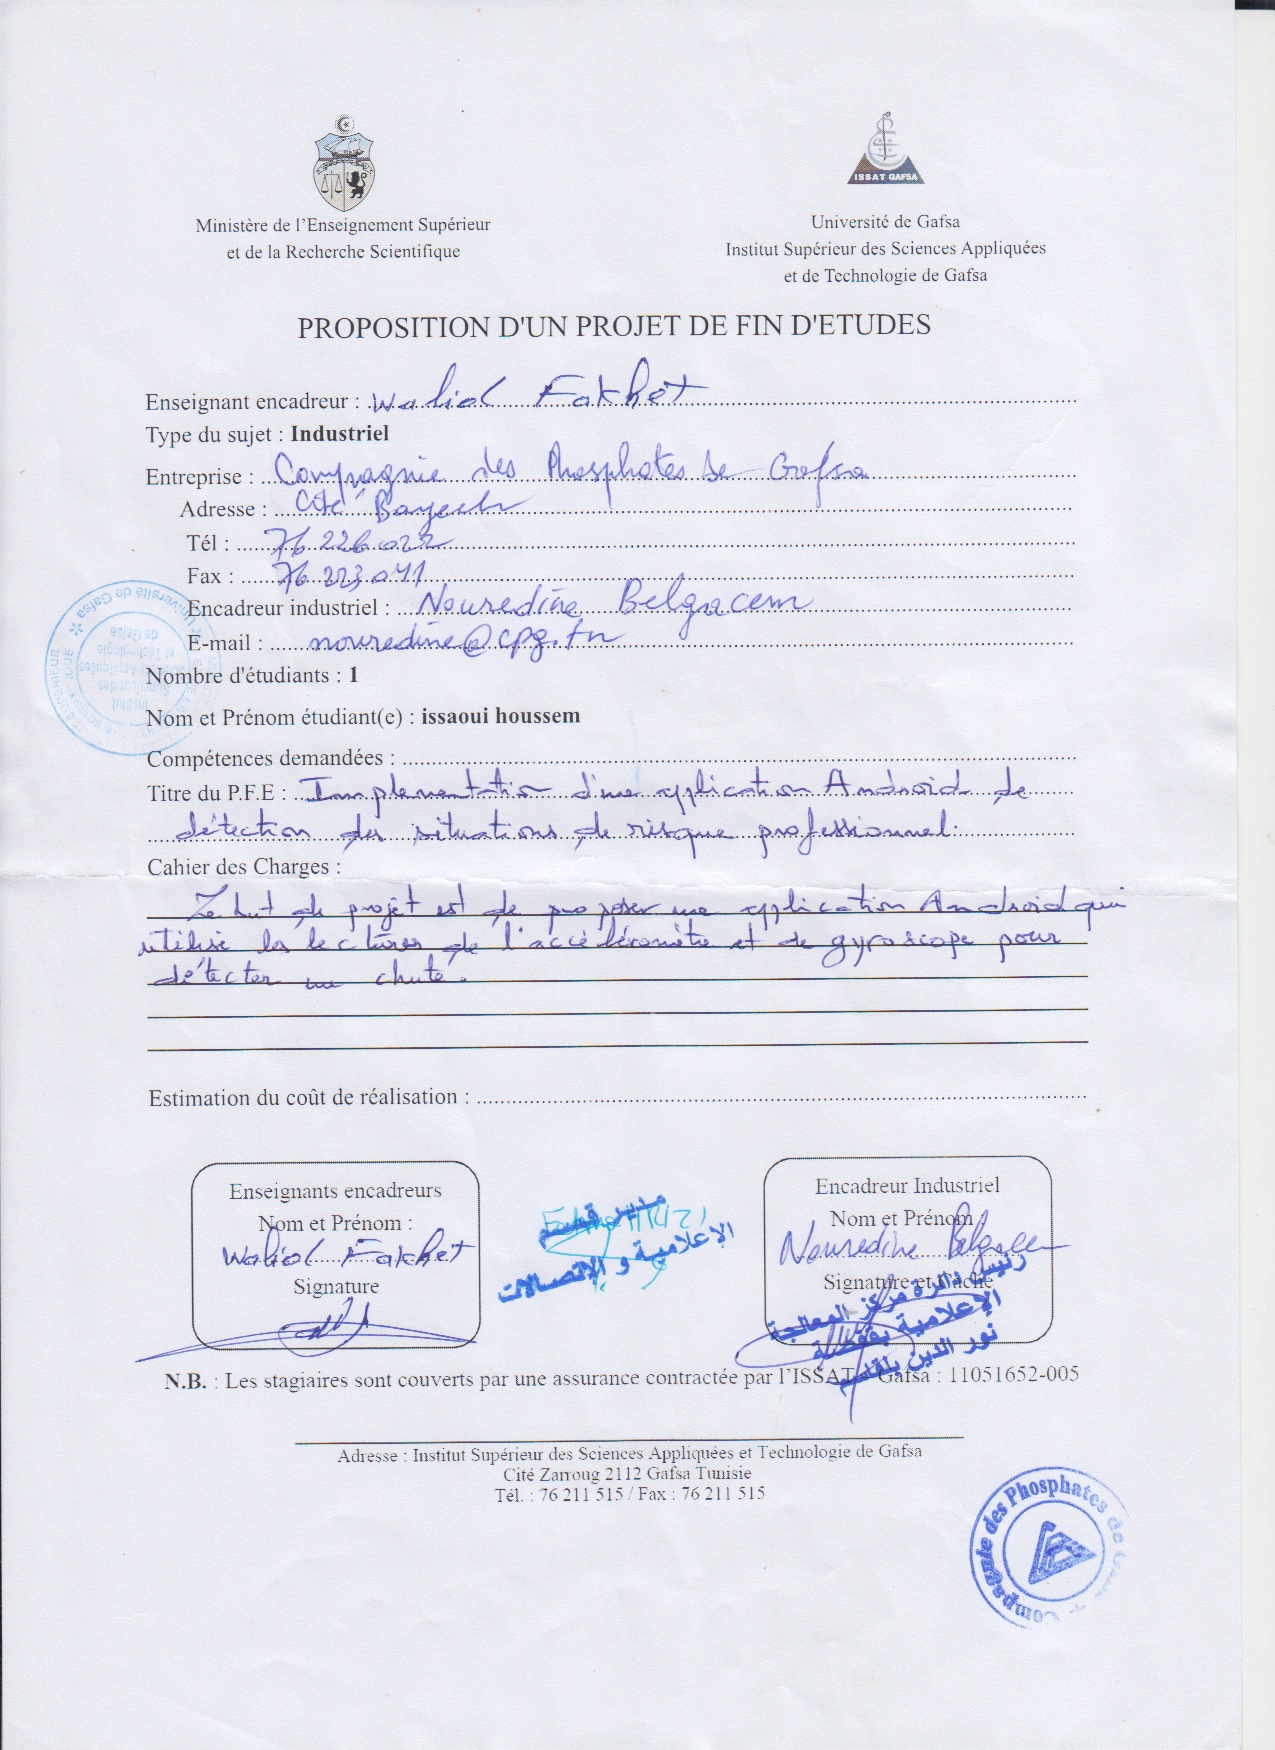 ISSAT GAFSA
Ministère de l'Enseignement Supérieur
et de la Recherche Scientifique
Université de Gafsa
Institut Supérieur des Sciences Appliquées
et de Technologie de Gafsa
PROPOSITION D'UN PROJET DE FIN D'ETUDES
Enseignant encadreur : Walid Fakhet
Type du sujet : Industriel
Entreprise : Compagnie des Phosphates de Gafsa
Adresse : Cité Bayech
Tél : 76 226 022
Fax : 76 223 041
Encadreur industriel : Nouredine Belgacem
E-mail : nouredine@cpg.tn
Nombre d'étudiants : 1
Nom et Prénom étudiant(e) : issaoui houssem
Compétences demandées :
Titre du P.F.E : Implementation d'une application Android de
détection des situations de risque professionnel.
Cahier des Charges :
Le but de projet est de proposer une application Android qui
utilise les lectures de l'accéléromètre et de gyroscope pour
détecter un chute.
Estimation du coût de réalisation :
Enseignants encadreurs
Nom et Prénom :
Walid Fakhet
Signature
مدير قسم
الإعلامية و الإتصالات
Encadreur Industriel
Nom et Prénom
Nouredine Belgacem
Signature et Cachet
رئيس دائرة مركز المعالجة
الإعلامية بقفصة
نور الدين بلقاسم
N.B. : Les stagiaires sont couverts par une assurance contractée par l'ISSAT Gafsa : 11051652-005
Adresse : Institut Supérieur des Sciences Appliquées et Technologie de Gafsa
Cité Zarroug 2112 Gafsa Tunisie
Tél. : 76 211 515 / Fax : 76 211 515
Compagnie des Phosphates de Gafsa
Université de Gafsa
Institut
Supérieur des
Sciences Appliquées
et Technologie
de Gafsa